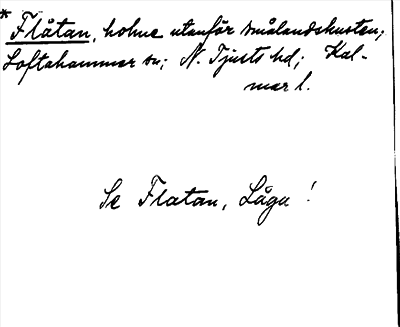 * Flåtan, holme utanför smålandskusten;
Loftahammar sn; N. Tjusts hd; Kal-
mar l.
Se Flatan, Låga!